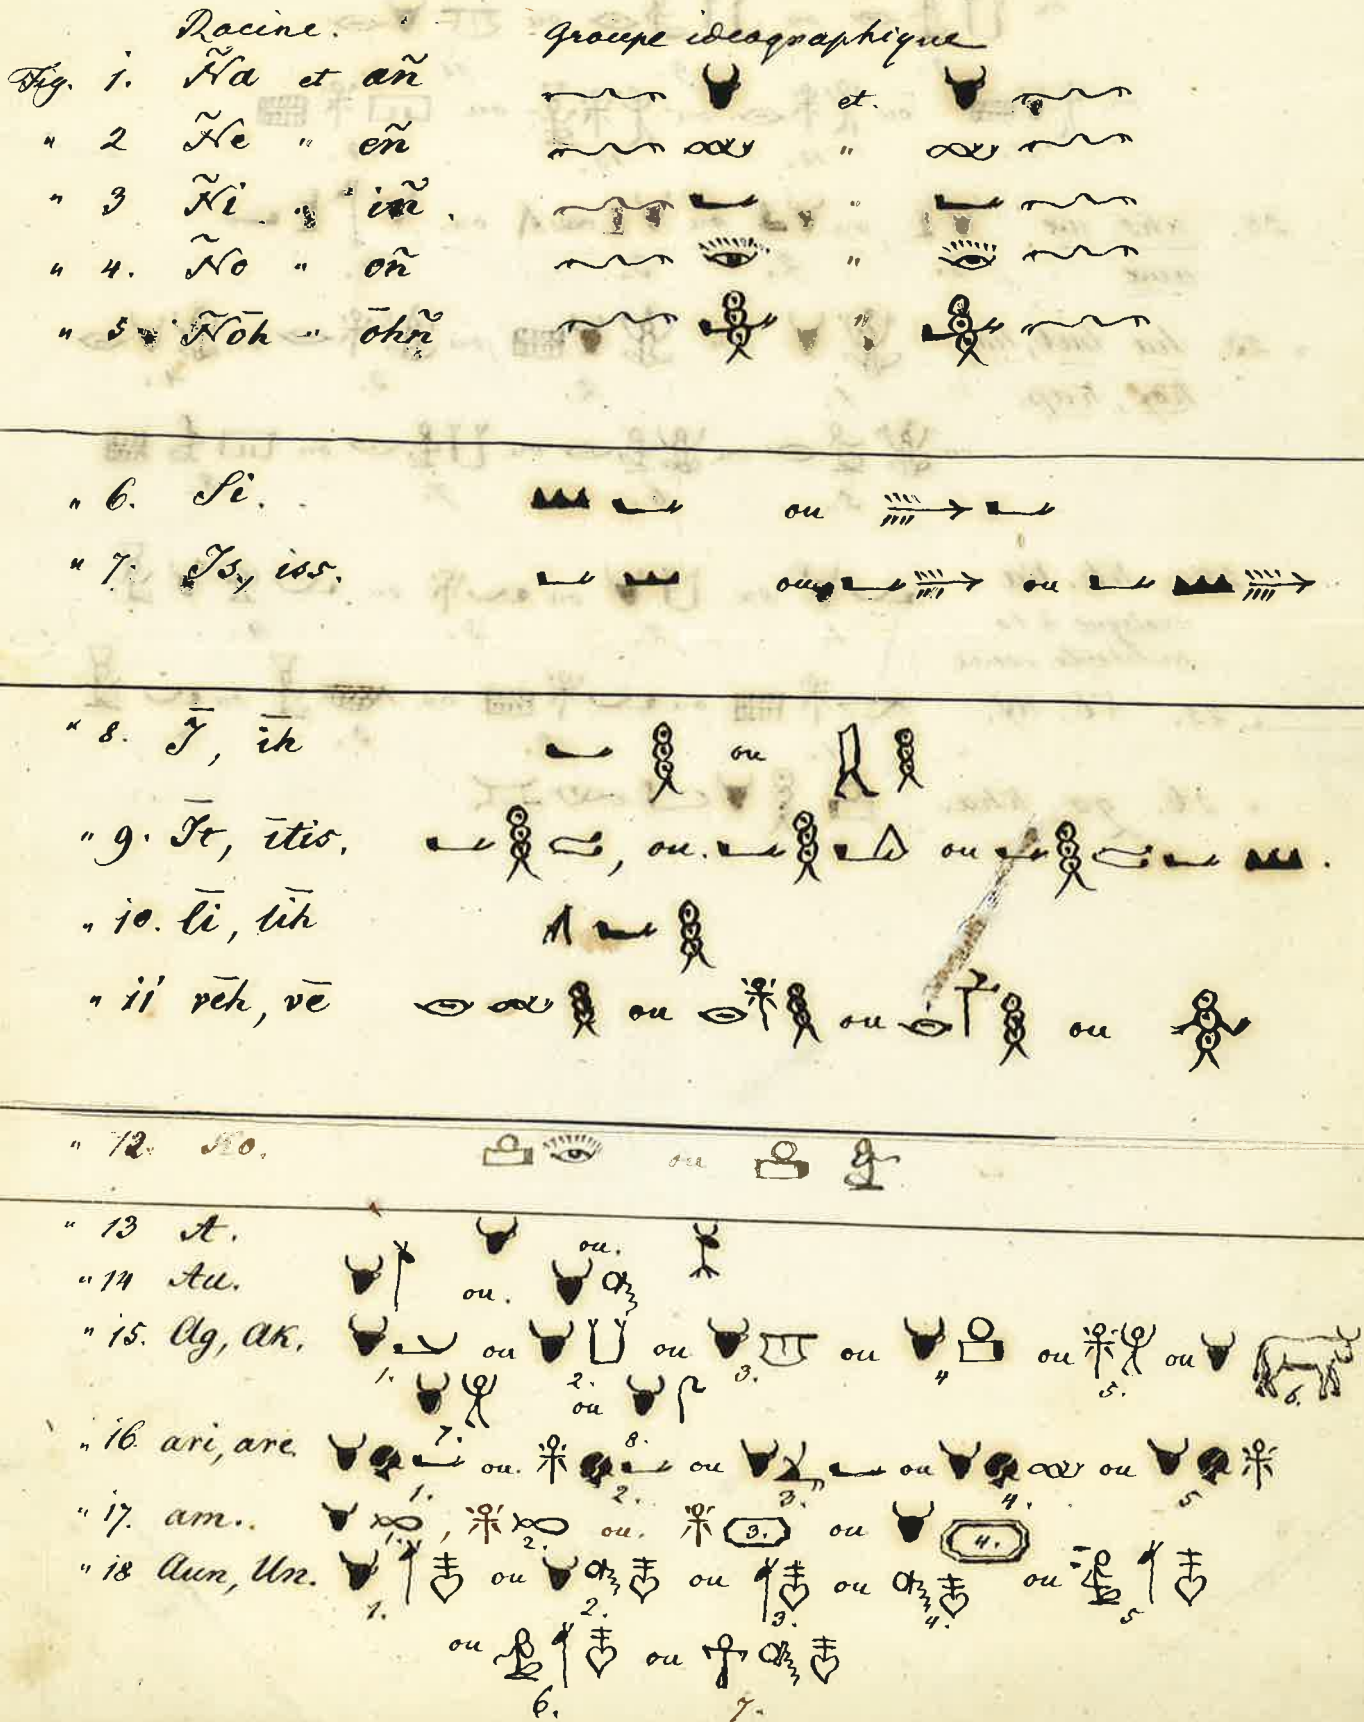 Racine. Groupe ideographique
Fig. 1. Ña et añ et.
" 2 Ñe " eñ "
" 3 Ñi " iñ. "
" 4. Ño " oñ "
" 5. Ñōh " ōhñ "
" 6. Si. ou
" 7. Is, iss. ou ou
" 8. Ī, īh ou
" 9. Īt, ītis. , ou. ou .
" 10. līi, līh
" 11 vēh, vē ou ou ou
" 12. Ko. ou
" 13 A. ou.
" 14 Au. ou.
" 15. Ag, Ak. ou ou ou ou ou
1. 2. 3. 4 5. 6.
ou
7. 8.
" 16. ari, are. ou. ou ou ou
1. 2. 3. 4. 5
" 17. am.. , ou. 3. ou 4.
1. 2.
" 18 Aun, Un. ou ou ou ou
1. 2. 3. 4. 5
ou ou
6. 7.